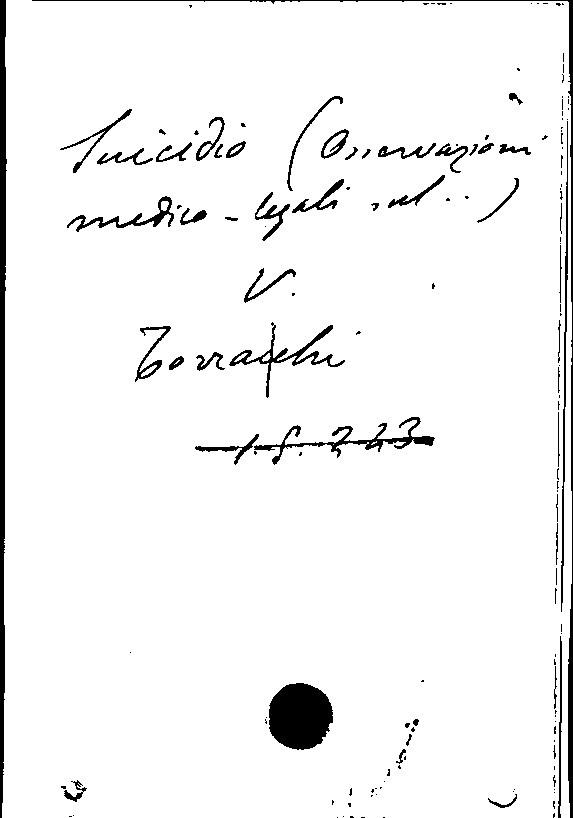 Suicidio (Osservazioni
medico-legali sul..)
V.
Torracchi
1.8.223